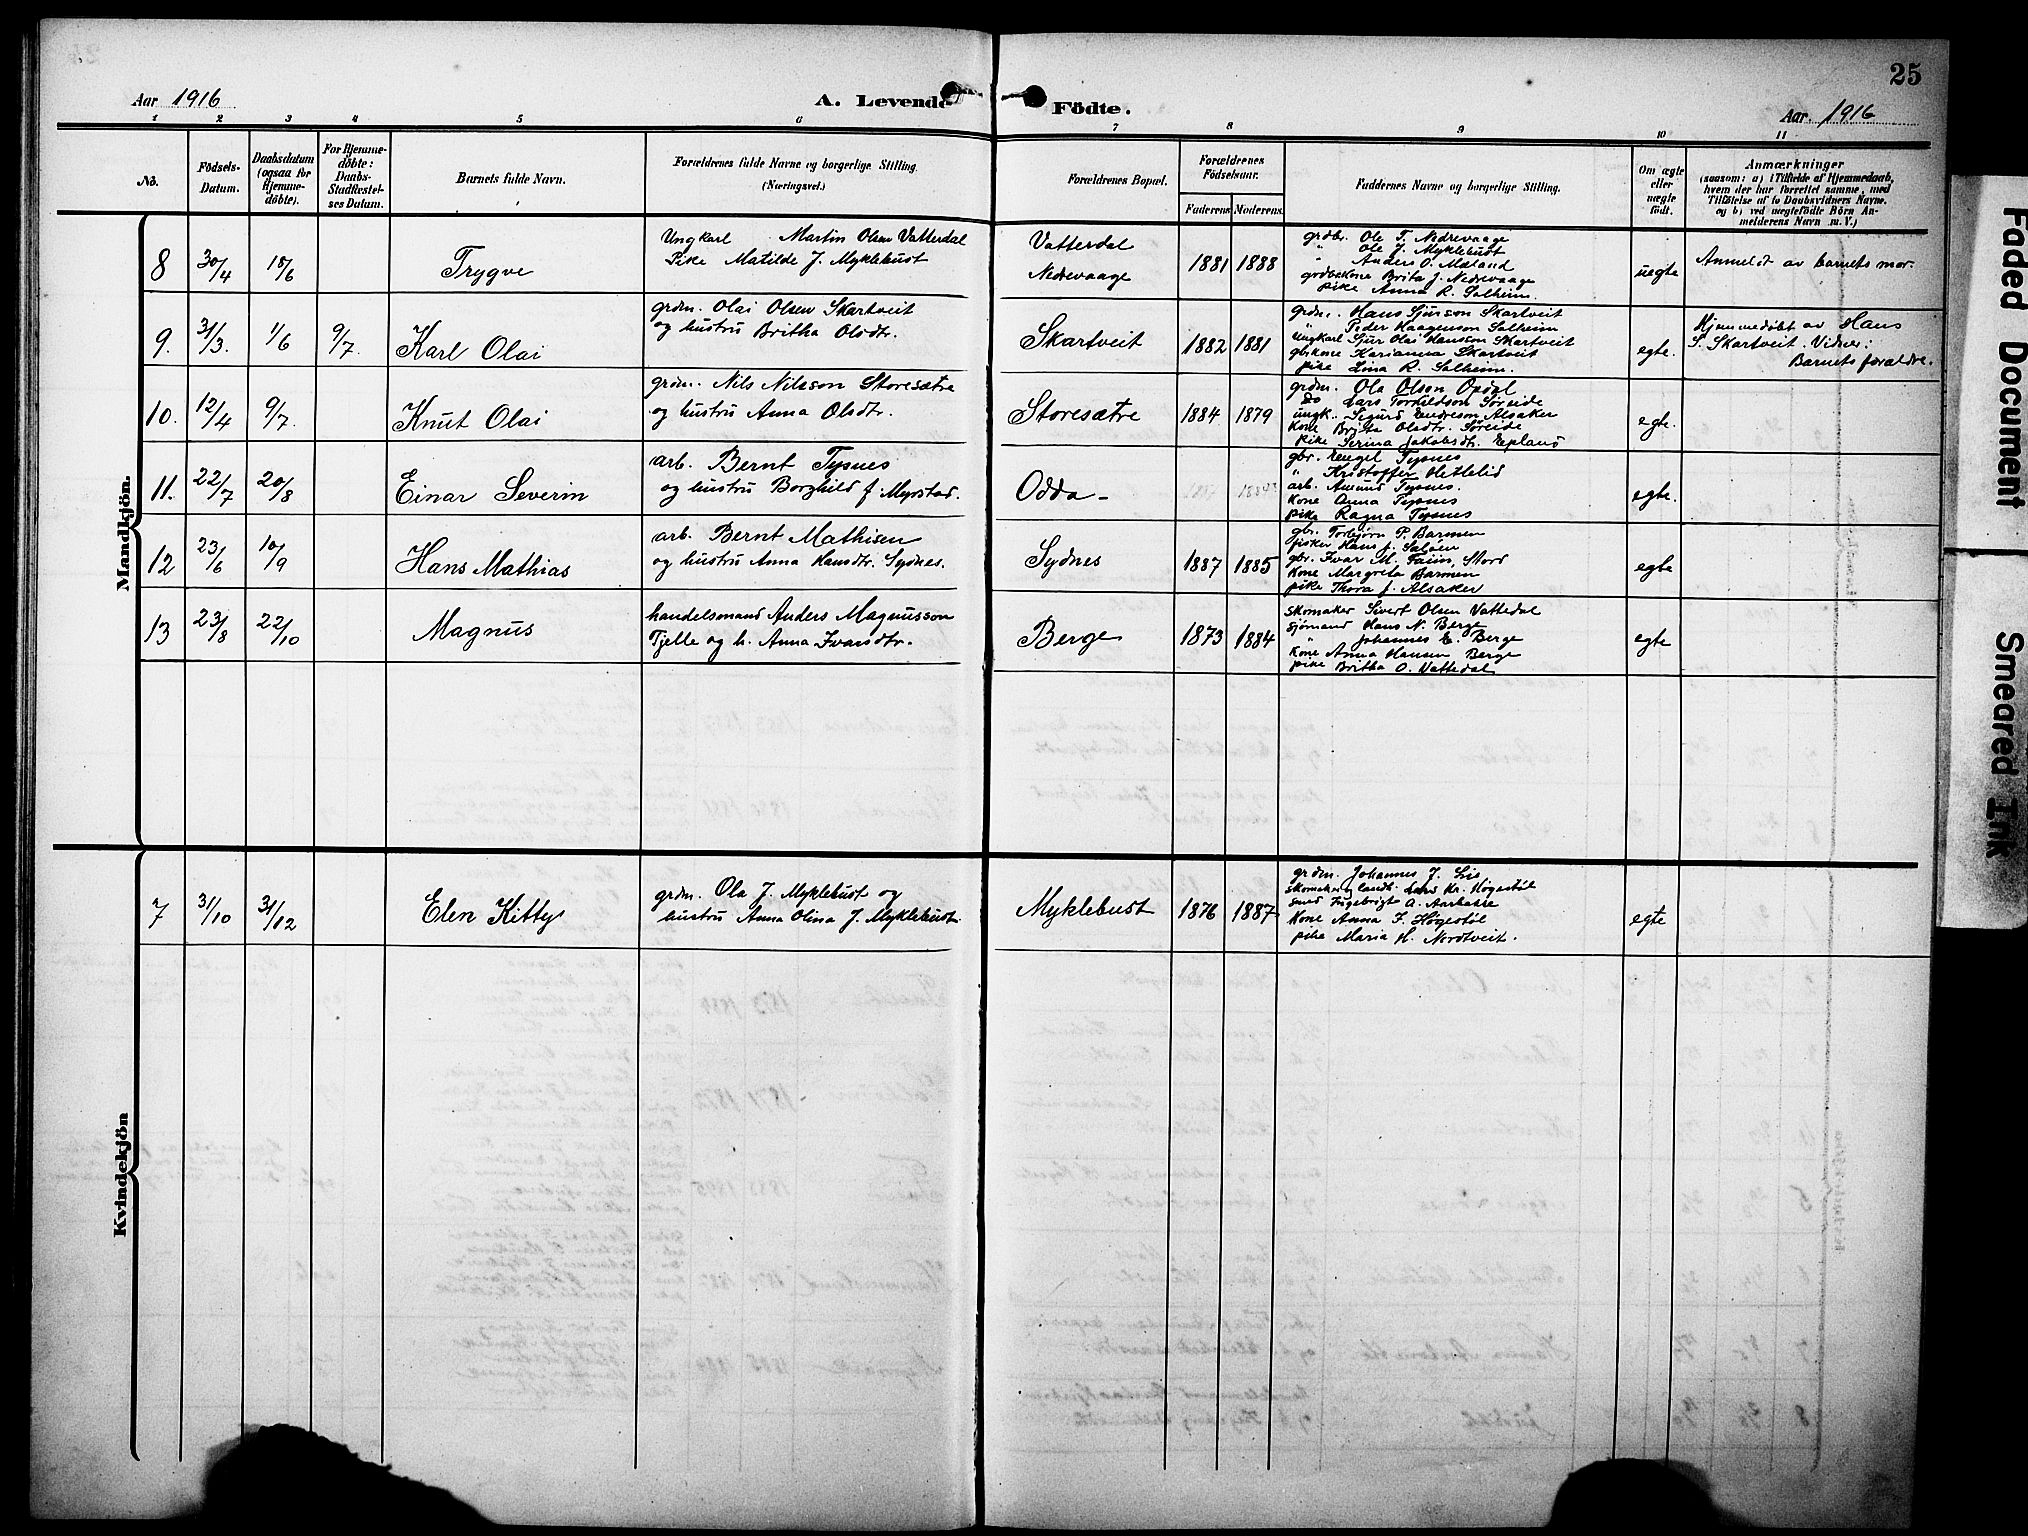 25
Aar 1916
A. Levende Födte.
Aar 1916
1 2 3 4 5 6 7 8 9 10 11
No.
Födsels-
Datum.
Daabsdatum
(ogsaa for
Hjemme-
döbte).
For Hjemme-
döbte:
Daabs-
Stadfæstel-
ses Datum.
Barnets fulde Navn.
Forældrenes fulde Navne og borgerlige Stilling.
(Næringsvei.)
Forældrenes Bopæl.
Forældrenes
Födselsaar.
Faderens Moderens.
Faddernes Navne og borgerlige Stilling.
Om ægte
eller
uægte
födt.
Anmærkninger
(saasom: a) i Tilfælde af Hjemmedaab,
hvem der har forrettet samme, med
Tilföielse af to Daabsvidners Navne,
og b) ved uægtefödte Börn An-
melderens Navn m. V.)
Mandkjön.
8 30/4 18/6 Trygve
Ungkarl Martin Olsen Vatterdal
Pike Matilde J. Myklebust
Vatterdal
Nedrevaage
1881 1888
grdbr. Ole T. Nedrevaage
" Ole J. Myklebust
" Anders O. Mæland
grdbrkone Brita J. Nedrevaage
pike Anna R. Solheim
uegte
Anmeldt av barnets mor.
9. 31/3. 1/6 9/7. Karl Olai
grdm. Olai Olsen Skartveit
og hustru Britha Olsdtr.
Skartveit
1882 1881
grdm. Hans Sjurson Skartveit
" Peder Haagenson Solheim
ungkarl Sjur Olai Hansson Skartveit
gbrkone Karianna Skartveit
pike Lina R. Solheim.
egte.
Hjemmedøbt av Hans
S. Skartveit. Vidner:
Barnets foreldre.
10. 12/4 9/7. Knut Olai
grdm. Nils Nilsson Storesætre
og hustru Anna Olsdtr.
Storesætre
1884 1879
grdm. Ole Olsen Opdal
Do Lars Torkildson Søreide
ungk. Sigurd Endreson Alsaker
Kone Brita Olsdtr. Søreide
pike Serina Jakobsdtr. Epland
egte.
11. 22/7 20/8 Einar Severin
arb. Bernt Tysnes
og hustru Borghild f. Myrstad.
Odda -
gbr. Engel Tysnes
" Kristoffer Hetlelid
arb. Amund Tysnes.
Kone Anna Tysnes
pike Ragna Tysnes
egte.
12 23/6 10/9 Hans Mathias
arb. Bernt Mathisen
og hustru Anna Hansdtr. Sydnes.
Sydnes
1887 1885
gbr. Torbjørn P. Barmen
fisker Hans J. Saløen
gbr. Ivar M. Stord
Kone Margreta Barmen
pike Thora J. Alsaker
egte
13 23/8 22/10 Magnus
handelsmand Anders Magnusson
Tjelle og h. Anna Ivarsdtr.
Berge
1873 1884
skomaker Sivert Olsen Vattedal
sjømand Hans N. Berge
" Johannes E. Berge
Kone Anna Hansen Berge
pike Britha O. Vattedal
egte
Kvindekjön
7 31/10 31/12 Elen Kitty
grdm. Ola J. Myklebust og
hustru Anna Olina J. Myklebust.
Myklebust
1876 1887
grdm. Johannes J. Lie
skomaker og landh. Lars Kr. Høgestøl
smed Ingebrigt A. Aarbakke
Kone Anna J. Høgestøl
pike Maria H. Nordtveit.
egte
Faded Document
Smeared Ink